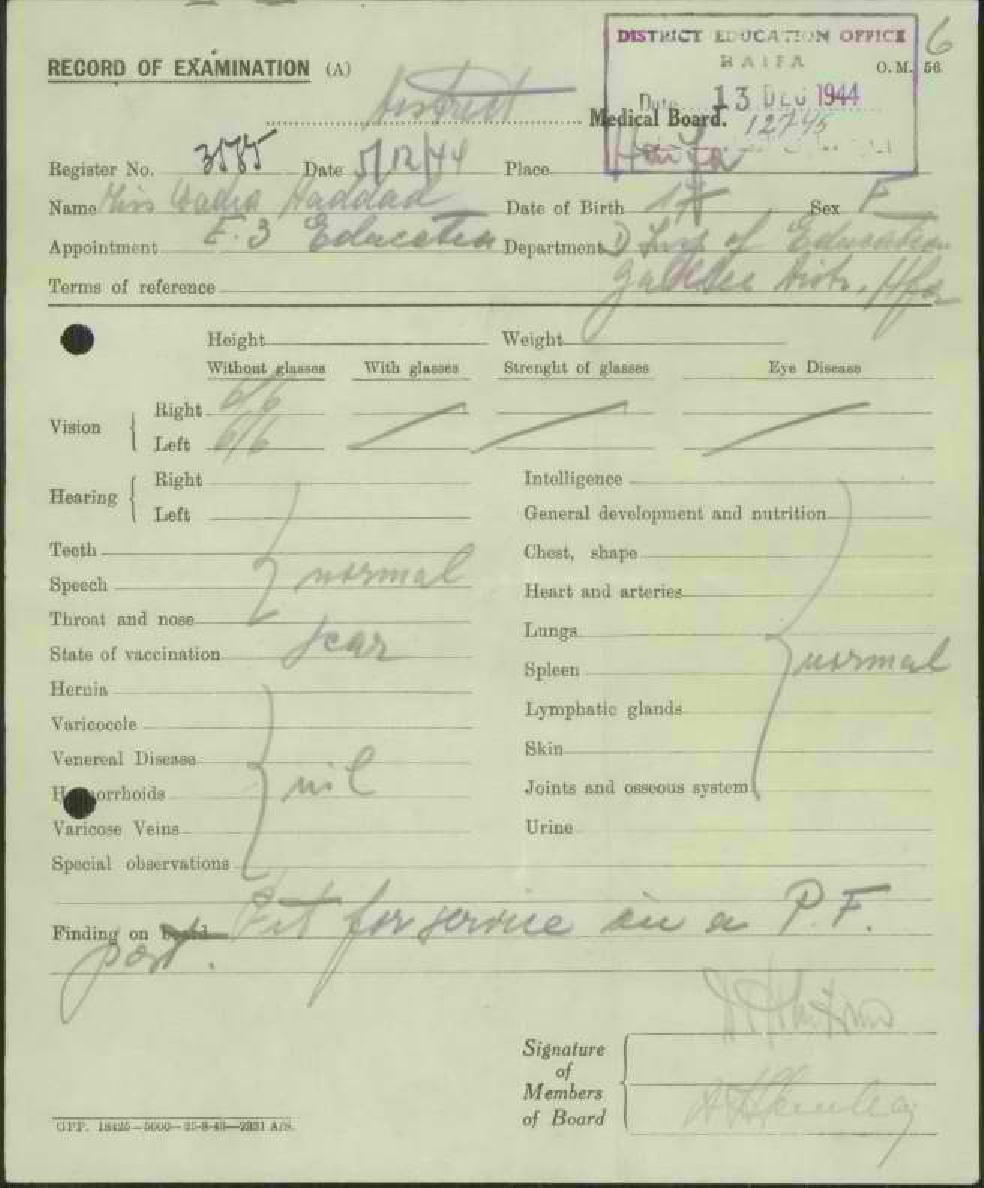 DISTRICT EDUCATION OFFICE
HAIFA
6
RECORD OF EXAMINATION (A)
O.M. 56
Date 13 DEC 1944
District Medical Board.
127/45
Register No. 3575 Date 5/12/44 Place Haifa
Name Miss Wadia Haddad Date of Birth Sex F
Appointment E.3 Education Department D Insp of Education
Terms of reference Galilee Distr, Hfa
Height Weight
Without glasses With glasses Strenght of glasses Eye Disease
Vision
Right 6/6
Left 6/6
Hearing
Right
Left
Intelligence
General development and nutrition
Teeth
Chest, shape
Speech
normal
Heart and arteries
Throat and nose
Lungs
State of vaccination scar
Spleen
normal
Hernia
Lymphatic glands
Varicocele
Skin
Venereal Disease
nil
Joints and osseous system
Hemorrhoids
Urine
Varicose Veins
Special observations
Finding on board Fit for service in a P.F.
post.
Signature
of
Members
of Board
GPP. 18425—5000—25-8-43—2931 A/S.